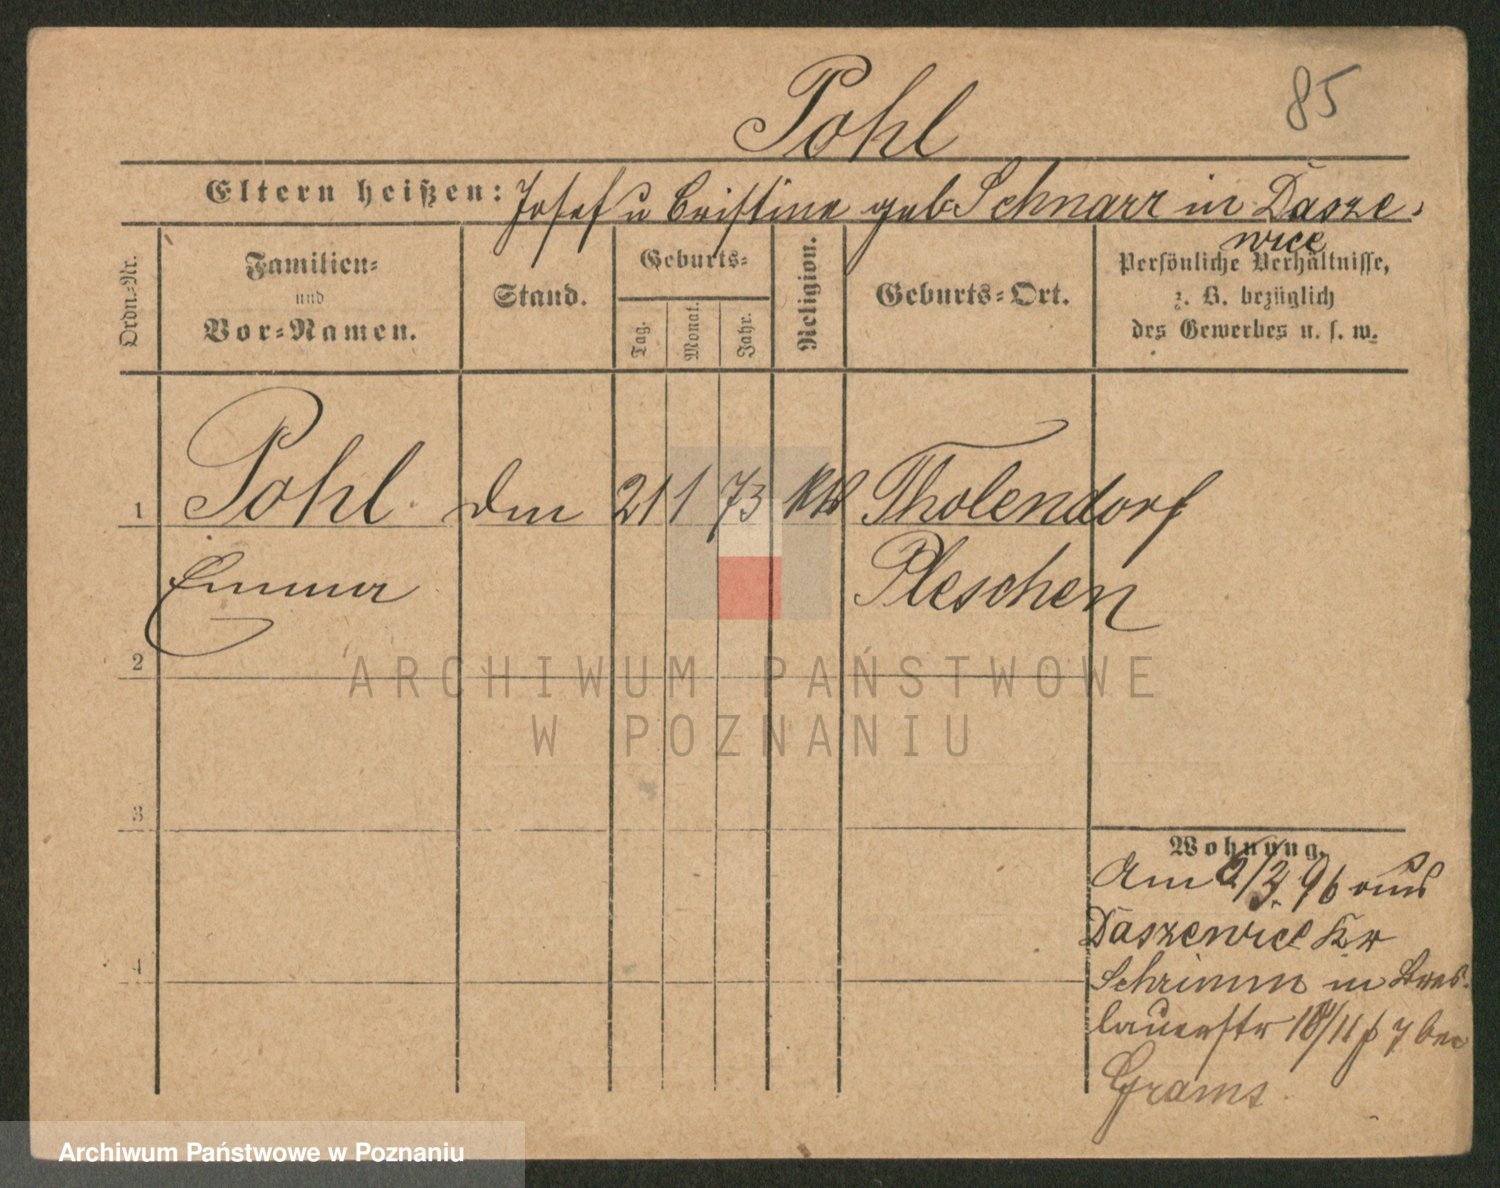 85
Pohl
Eltern heißen: Josef u Cristine geb Schnarr in Dasze-
wice
Ordn.-Nr.
Familien-
und
Vor-Namen.
Stand.
Geburts-
Tag.
Monat.
Jahr.
Religion.
Geburts-Ort.
Persönliche Verhältnisse,
z. B. bezüglich
des Gewerbes u. s. w.
1 Pohl 21 1 73 kth Tholendorf
Emma Pleschen
2
3
4
Wohnung.
Am 2/3. 96 aus
Daszewice Kr
Schrimm in Bres-
lauerstr 18/11 7 bei
Grams
ARCHIWUM PAŃSTWOWE
W POZNANIU
Archiwum Państwowe w Poznaniu